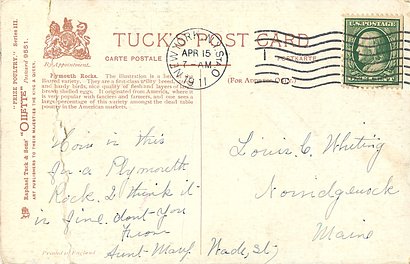 "PRIZE POULTRY," Series III.
Raphael Tuck & Sons' "OILETTE" Postcard 9551.
ART PUBLISHERS TO THEIR MAJESTIES THE KING & QUEEN.
By Appointment.
TUCK'S POST CARD
CARTE POSTALE
POSTKARTE
Plymouth Rocks. The illustration is a
Barred variety. They are a first class utility breed
and hardy birds, nice quality of flesh and layers of
brown shelled eggs. It originated from America, where it
is very popular with fanciers and farmers, and one sees a
large percentage of this variety amongst the dead table
poultry in the American markets.
(For Address Only.)
NEW YORK, N.Y. STA. O
APR 15
7-AM
1911
U.S. POSTAGE
How is this
for a Plymouth
Rock. I think it
is fine. dont you
From
Aunt Mary.
Louis C. Whiting
Norridgewock
Maine
Wade, St.
Printed in England